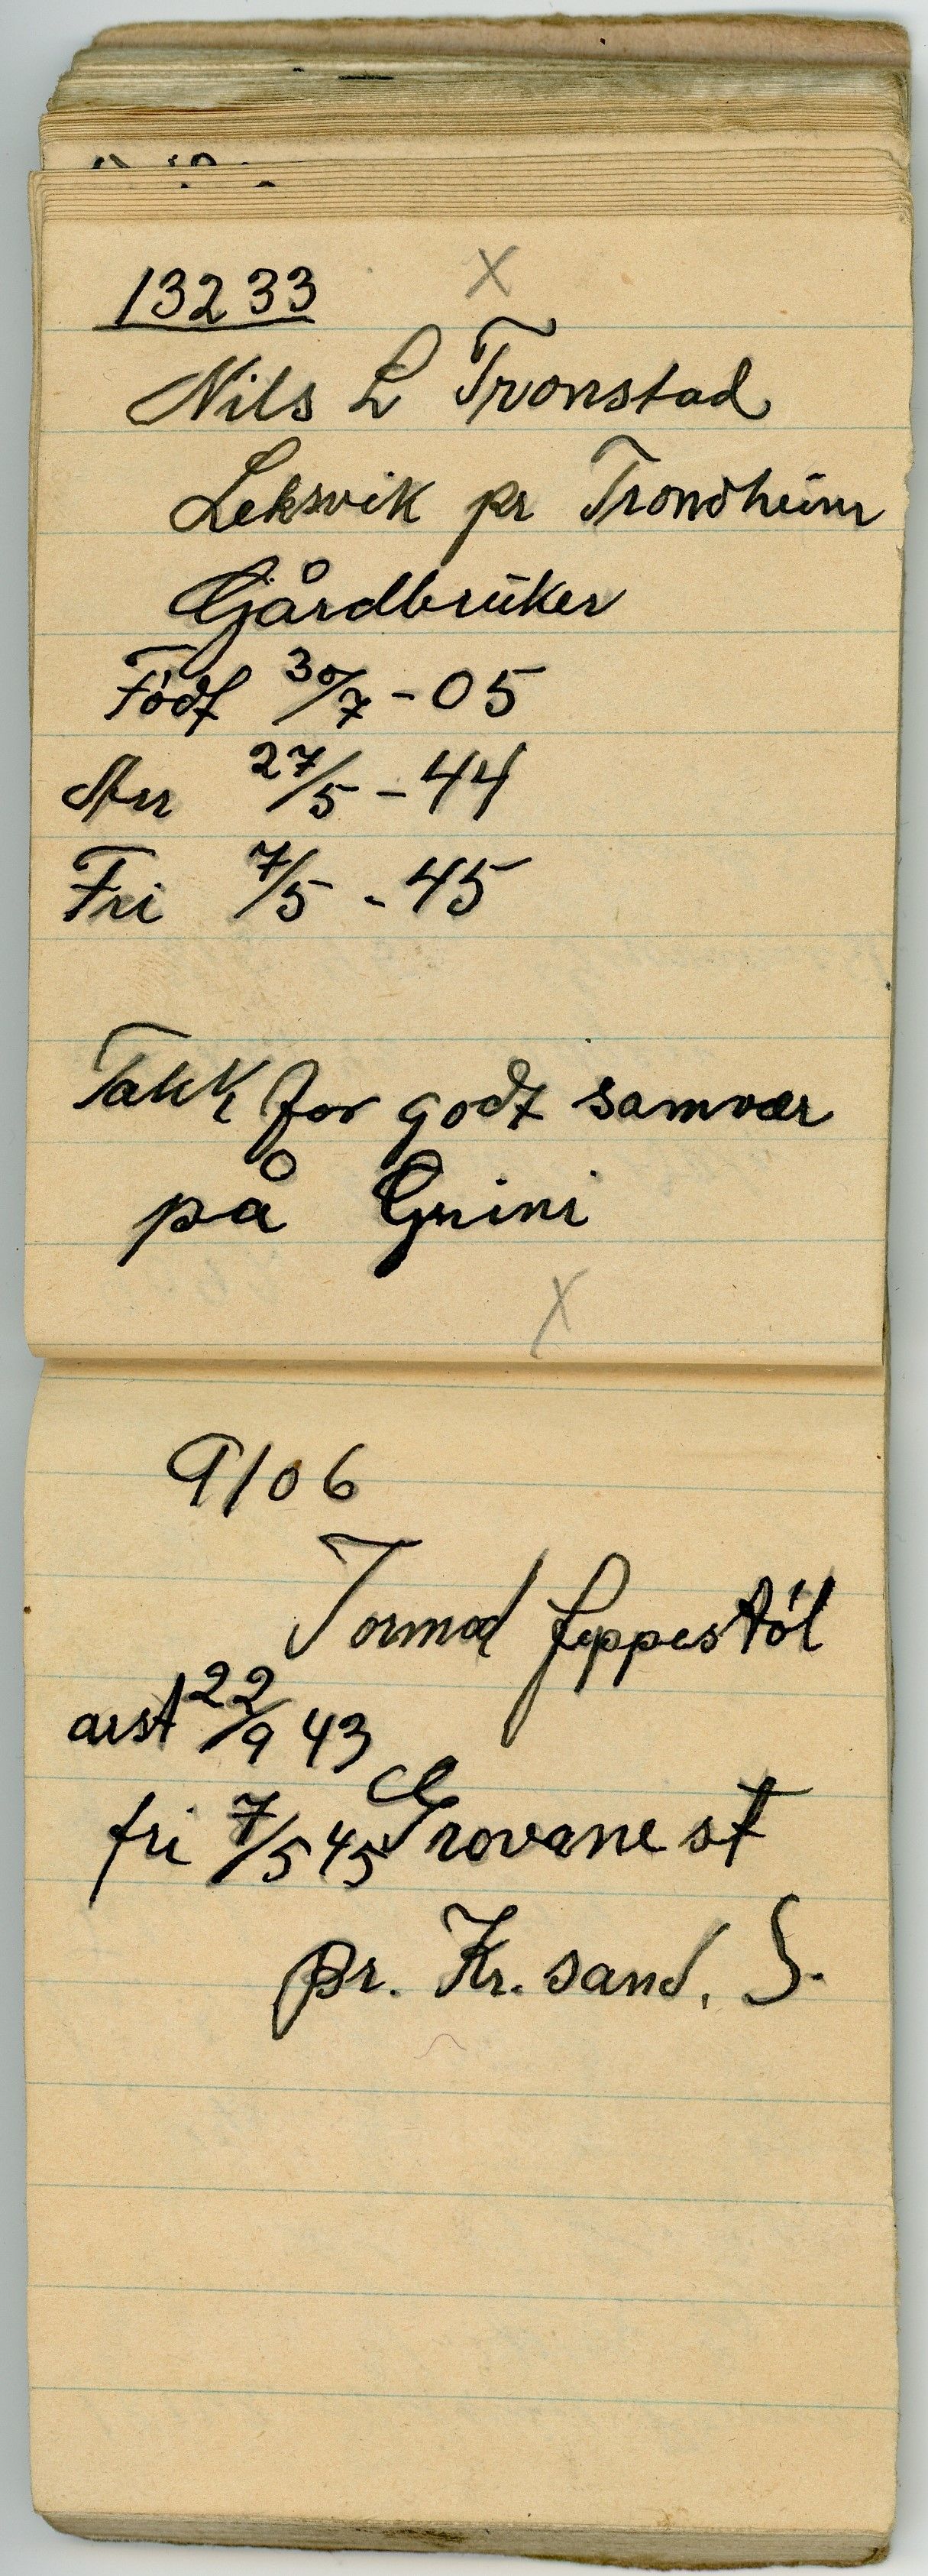 13233 X
Nils L Tronstad
Leksvik pr Trondheim
Gårdbrüker
Født 30/7 - 05
Arr 27/5 - 44
Fri 7/5 - 45
Takk for godt samvær
på Grini
X
9106
Tormod Jeppestól
arst 22/9 43
fri 7/5 45 Grovane st
pr. Kr. sand. S.